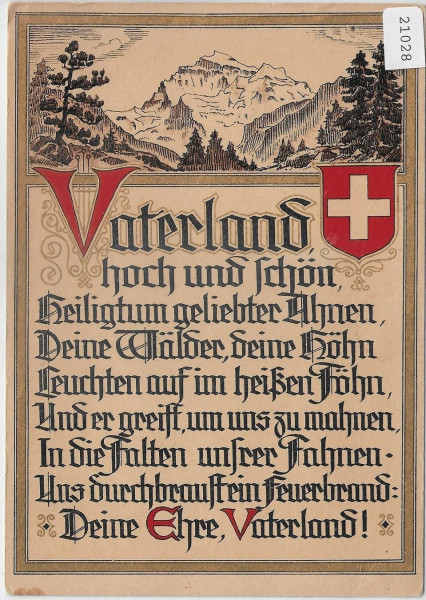 21028
Vaterland,
hoch und schön,
Heiligtum geliebter Ahnen,
Deine Wälder, deine Höhn
Leuchten auf im heißen Föhn,
Und er greift, um uns zu mahnen,
In die Falten unsrer Fahnen·
Uns durchbraust ein Feuerbrand:
Deine Ehre, Vaterland!